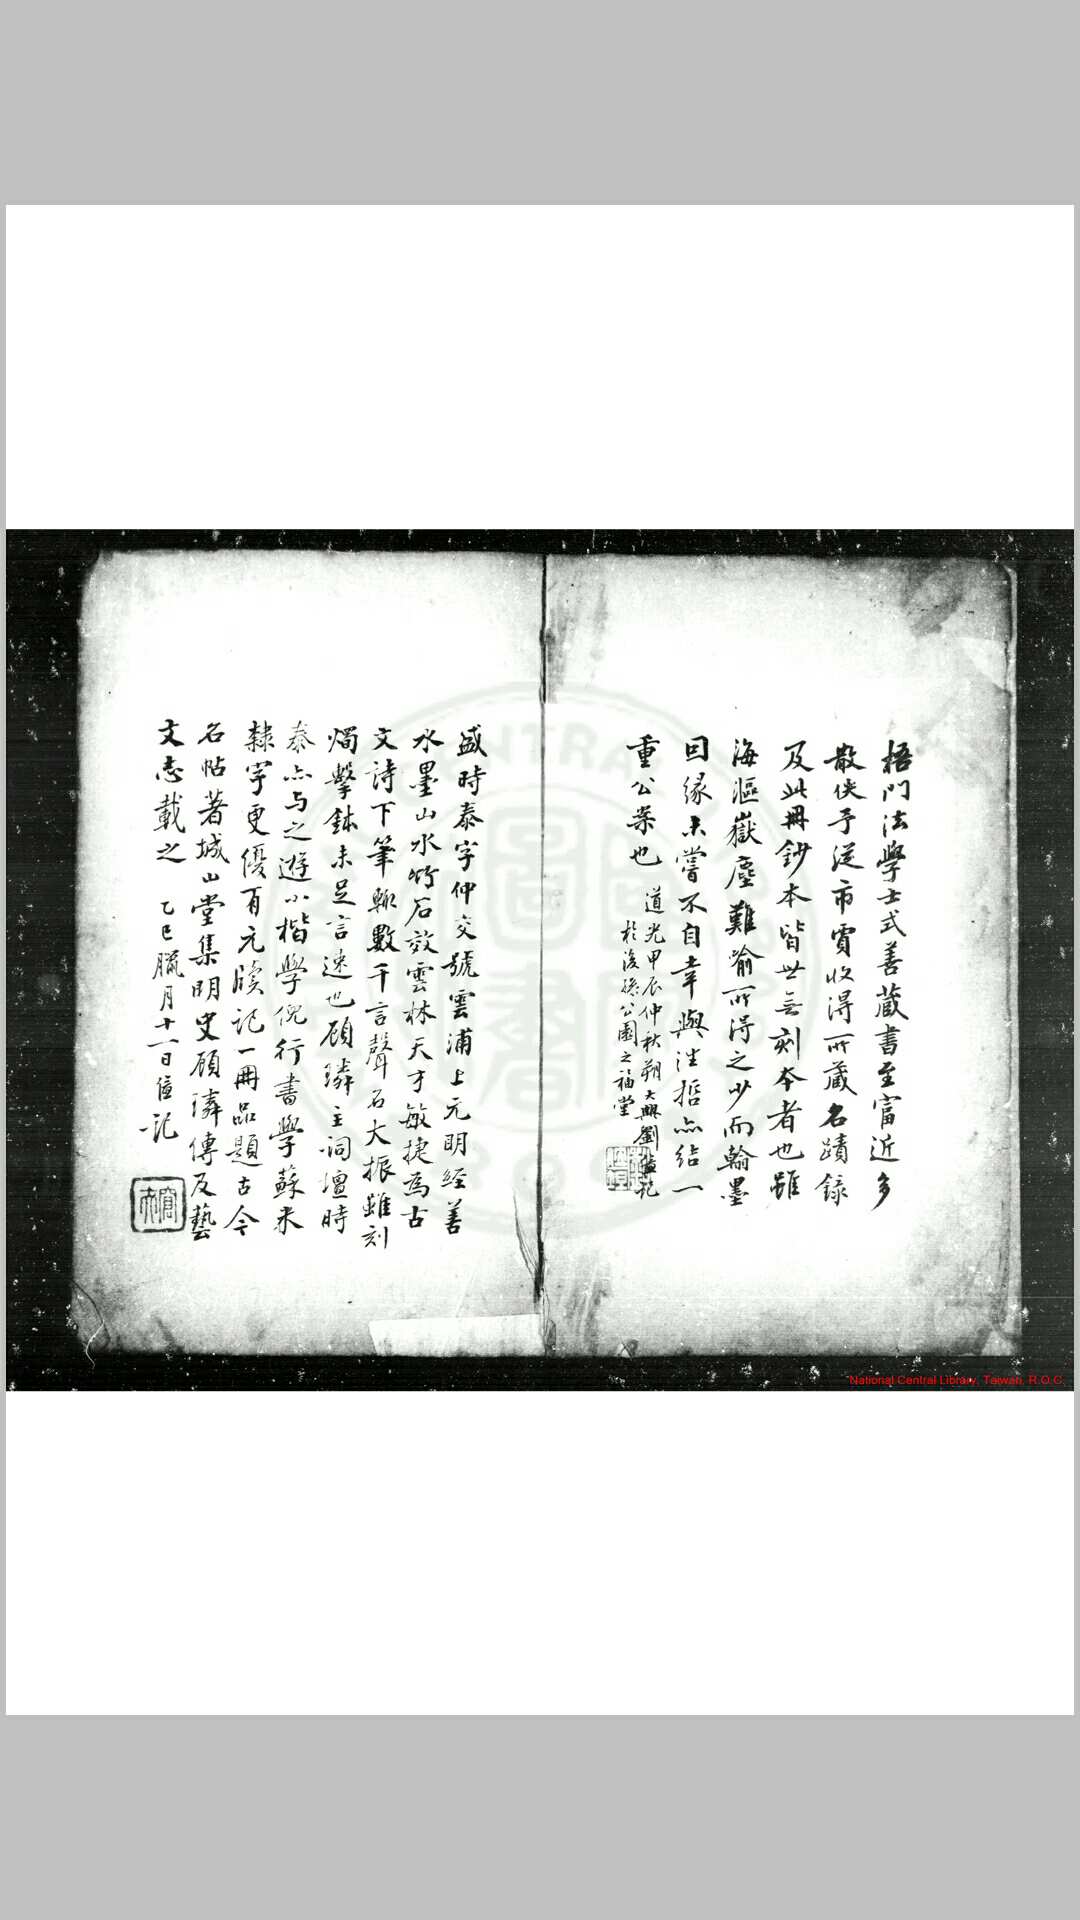 梧門法學士式善藏書至富近多
散佚予從市賈收得所藏名蹟錄
及此冊鈔本皆世無刻本者也雖
海漚嶽塵難喻所得之少而翰墨
回緣未嘗不自幸與往哲亦結一
重公案也
道光甲辰仲秋朔大興劉位坦記
於後孫公園之福堂
盛時泰字仲交號雲浦上元明經善
水墨山水竹石效雲林天才敏捷為古
文詩下筆輒數千言聲名大振雖刻
燭擊鉢未足言速也顧璘主詞壇時
泰亦与之遊小楷學倪行書學蘇米
隸字更優有元牘記一冊品題古今
名帖著城山堂集明史顧璘傳及藝
文志載之
乙巳臘月十一日位記
National Central Library, Taiwan, R.O.C.